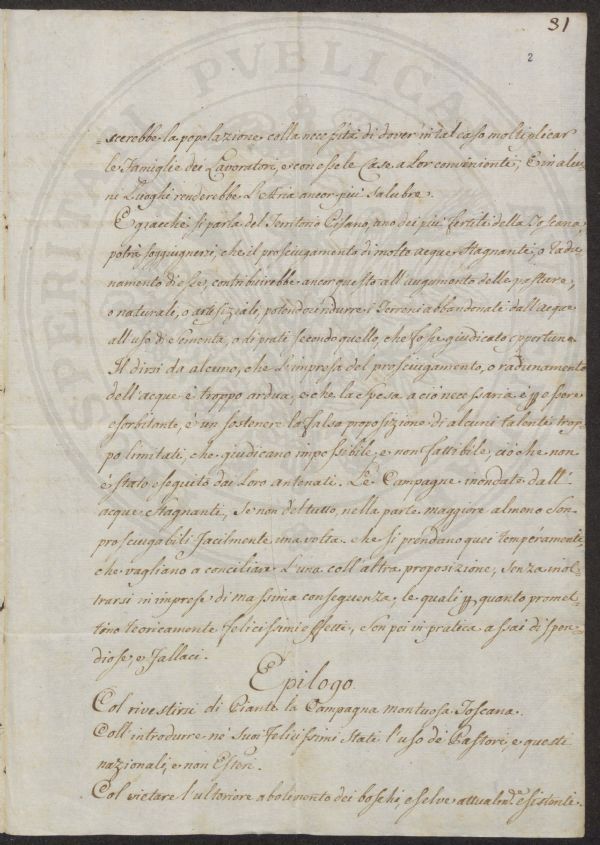 31
2
=scerebbe la popolazione colla necessità di dover in tal caso moltiplicar
le Famiglie dei Lavoratori, e con esse le Case a Lor convenienti; E in alcu-
ni Luoghi renderebbe l'Aria ancor più salubre.
E giacchè si parla del Territorio Pisano, uno dei più fertili della Toscana,
potrà soggiugnersi, che il prosciugamento di molte acque stagnanti, o radu-
namento di esse, contribuirebbe ancor questo all'augumento delle pasture,
o naturali, o artifiziali, potendo indurre i Terreni abbandonati dall'acque
all'uso di sementa, o di prati secondo quello, che fosse giudicato opportuno.
Il dirsi da alcuno, che l'impresa del prosciugamento, o radunamento
dell'acque è troppo ardua, e che la spesa a ciò necessaria è p essere
esorbitante, è un sostenere la falsa proposizione di alcuni talenti trop-
po limitati, che giudicano impossibile, e non fattibile, ciò che non
è stato eseguito dai loro antenati. Le Campagne inondate dall'
acque stagnanti, se non del tutto, nella parte maggiore almeno son
prosciugabili facilmente una volta che si prendano quei temperamenti,
che vagliano a conciliare l'una coll'altra proposizione, senza inol-
trarsi in imprese di massima conseguenza, le quali p quanto promet-
tino teoricamente felicissimi effetti, son poi in pratica assai dispen-
diose, e fallaci.
Epilogo.
Col rivestirsi di Piante la Campagna montuosa Toscana.
Coll'introdurre ne' suoi felicissimi Stati l'uso de' Pastori, e questi
nazionali, e non Esteri.
Col vietare l'ulteriore abolimento dei boschi, e selve attualm.te esistenti.
PROSPERITATI PUBLICAE